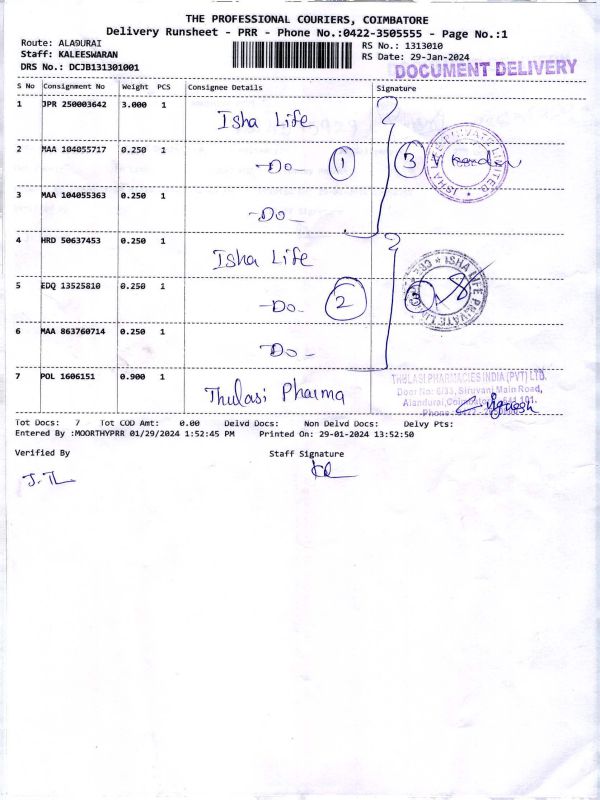 THE PROFESSIONAL COURIERS, COIMBATORE
Delivery Runsheet - PRR - Phone No.:0422-3505555 - Page No.:1
Route: ALADURAI
Staff: KALEESWARAN
DRS No.: DCJB131301001
RS No.: 1313010
RS Date: 29-Jan-2024
DOCUMENT DELIVERY
S No Consignment No Weight PCS Consignee Details Signature
1 JPR 250003642 3.000 1 Isha Life
2 MAA 104055717 0.250 1 -Do- 1 3
ISHA LIFE PRIVATE LIMITED
3 MAA 104055363 0.250 1 -Do-
4 HRD 50637453 0.250 1 Isha Life
5 EDQ 13525810 0.250 1 -Do- 2
ISHA LIFE PRIVATE LIMITED
6 MAA 863760714 0.250 1 Do-
7 POL 1606151 0.900 1 Thulasi Pharma
THULASI PHARMACIES INDIA (PVT) LTD.
Door No: 6/33, Siruvani Main Road,
Alandurai, Coimbatore-641 101.
Phone:
Vignesh
Tot Docs: 7 Tot COD Amt: 0.00 Delvd Docs: Non Delvd Docs: Delvy Pts:
Entered By :MOORTHYPRR 01/29/2024 1:52:45 PM Printed On: 29-01-2024 13:52:50
Verified By Staff Signature